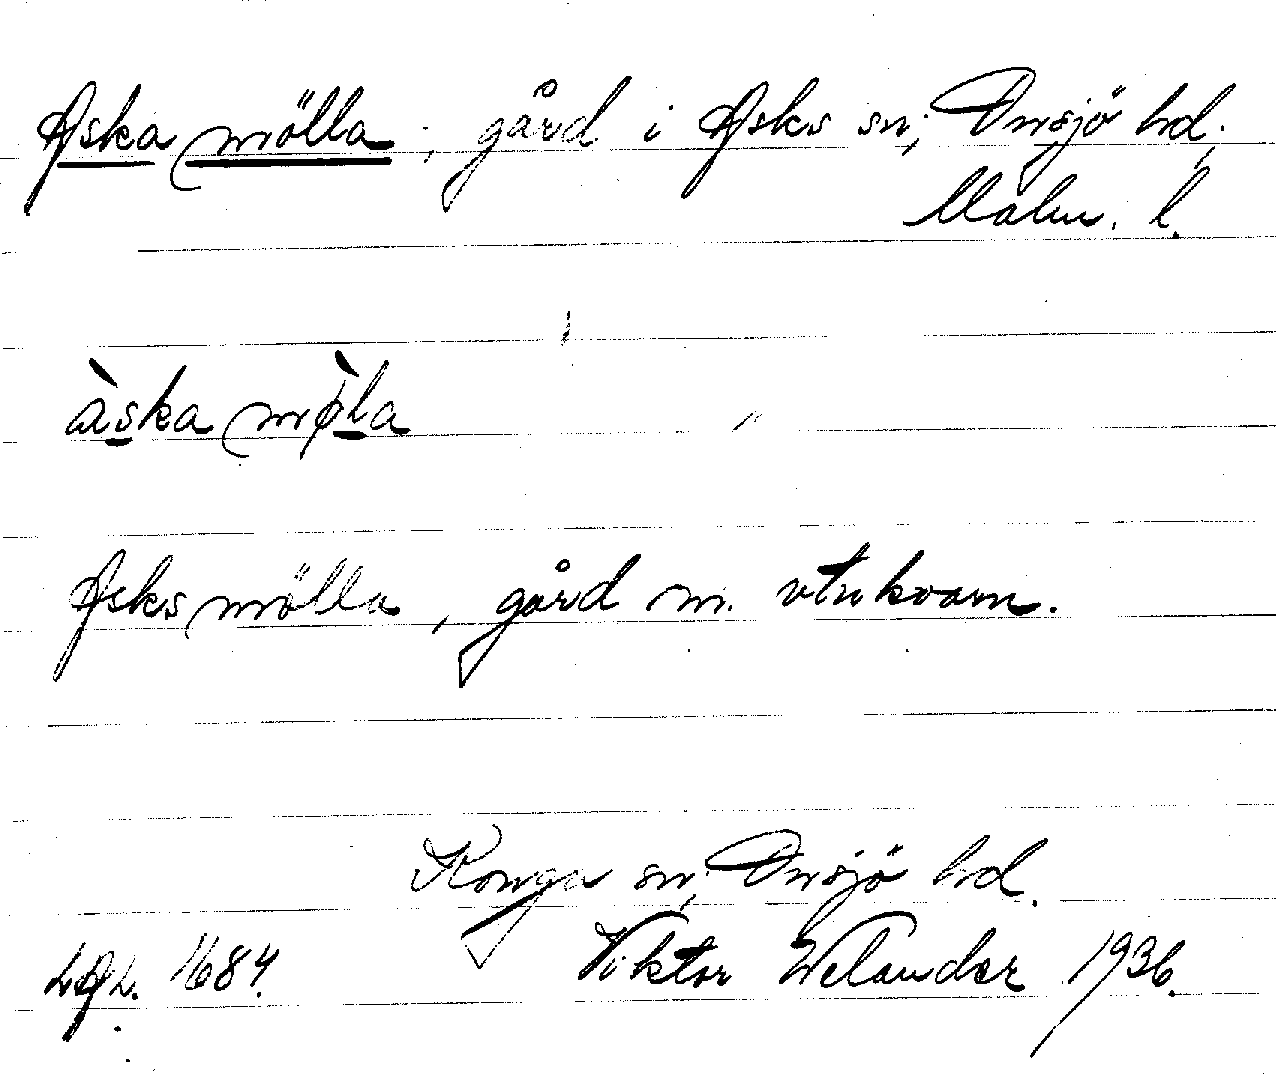 Aska mölla, gård i Asks sn, Onsjö hd,
Malm. l.
àska mø̀la
Asks mölla, gård m. vtnkvarn.
Konga sn, Onsjö hd.
LAL. 1684. Viktor Welander 1936.